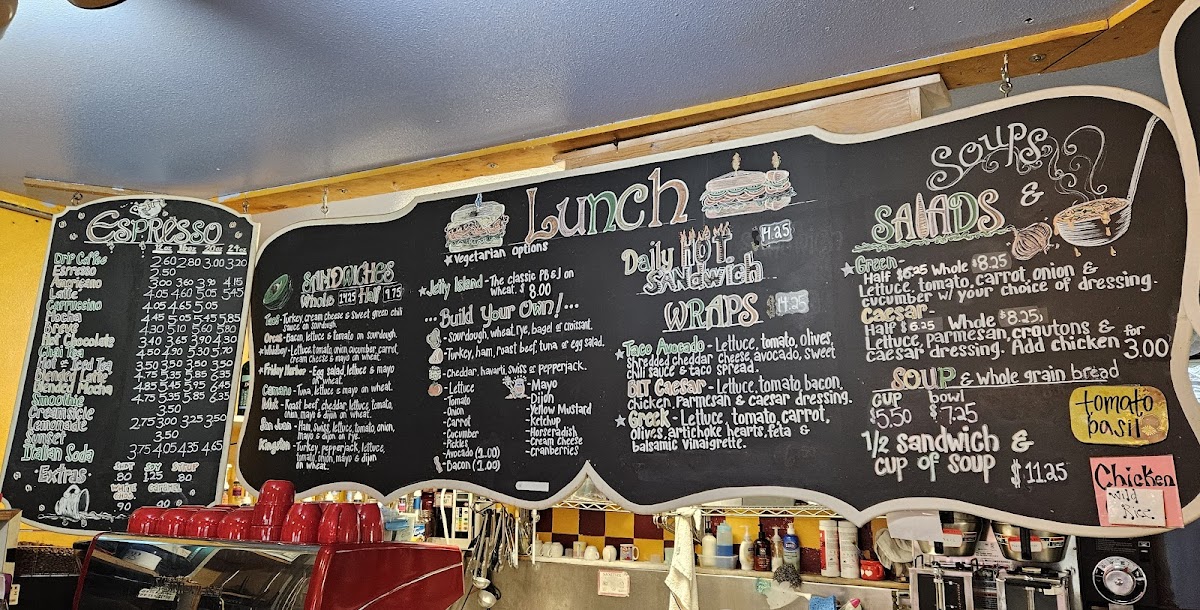 Espresso
12oz 16oz 20oz 24oz
Drip Coffee 2.60 2.80 3.00 3.20
Espresso 2.50
Americano 3.00 3.60 3.90 4.15
Latte 4.05 4.60 5.05 5.45
Cappuccino 4.05 4.65 5.05
Mocha
Breve
Hot Chocolate
Chai Tea
Hot or Iced Tea
Blended Latte
Blended Mocha
Smoothie
Creamsicle 3.50
Lemonade 2.75 3.00 3.25 3.50
Sunset 3.50
Italian Soda 3.75 4.05 4.35 4.65
Extras
SHOT SOY SYRUP
.80 1.25 .80
CARAMEL
.90 .90
Lunch
★Vegetarian options
SANDWICHES
Whole 14.25 Half 9.75
Turkey, cream cheese & sweet green chili
sauce on sourdough.
Orcas - Bacon, lettuce & tomato on sourdough.
★Whidbey - Lettuce, tomato, onion, cucumber, carrot,
cream cheese & mayo on wheat.
★Friday Harbor - Egg salad, lettuce & mayo
on wheat.
Camano - Tuna, lettuce & mayo on wheat.
Roast beef, cheddar, lettuce, tomato,
onion, mayo & dijon on wheat.
San Juan - Ham, swiss, lettuce, tomato, onion,
mayo & dijon on rye.
Kingston - Turkey, pepperjack, lettuce,
tomato, onion, mayo & dijon
on wheat.
★Jelly Island - The classic PB & J on
wheat. $ 8.00
...Build Your Own!...
- Sourdough, wheat, rye, bagel or croissant.
- Turkey, ham, roast beef, tuna or egg salad.
- Cheddar, havarti, swiss or pepperjack.
- Lettuce
- Tomato
- Onion
- Carrot
- Cucumber
- Pickles
- Avocado (1.00)
- Bacon (2.00)
- Mayo
- Dijon
- Yellow Mustard
- Ketchup
- Horseradish
- Cream Cheese
- Cranberries
Daily HOT 14.25
SANDWICH
WRAPS $14.25
Taco Avocado - Lettuce, tomato, olives,
shredded cheddar cheese, avocado, sweet
chili sauce & taco spread.
BLT Caesar - Lettuce, tomato, bacon,
chicken, parmesan & caesar dressing.
★Greek - Lettuce, tomato, carrot,
olives, artichoke hearts, feta &
balsamic vinaigrette.
Soups
&
SALADS
★Green -
Half $6.25 Whole $8.25
Lettuce, tomato, carrot, onion &
cucumber w/ your choice of dressing.
Caesar -
Half $6.25 Whole $8.25,
Lettuce, parmesan, croutons &
caesar dressing. Add chicken for
3.00
SOUP & whole grain bread
CUP bowl
$5.50 $7.25
1/2 sandwich &
cup of soup $11.25
tomato
basil
Chicken
Wild
Rice